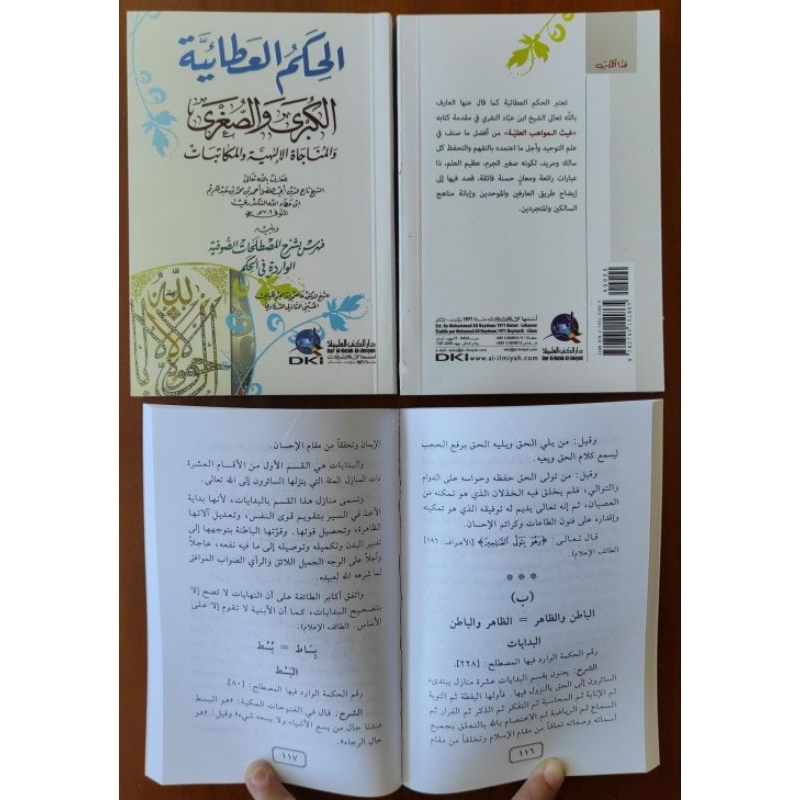 الحِكَم العَطائيَّة
الكبرى والصغرى
والمناجاة الإلهية والمكاتبات
للعارف بالله تعالى
ويليه
فهرس لشرح المصطلحات الصوفية
الواردة في الحكم
دار الكتب العلمية
Dar Al-Kotob Al-ilmiyah
DKI
هذا الكتاب
تعتبر الحكم العطائية كما قال عنها العارف
بالله تعالى الشيخ ابن عبّاد النفري في مقدمة كتابه
«غيث المواهب العليّة» من أفضل ما صنف في
علم التوحيد وأجل ما اعتمده بالتفهم والتحفظ كل
سالك ومريد، لكونه صغير الجرم، عظيم العلم، ذا
عبارات رائعة ومعانٍ حسنة فائقة، قصد فيها إلى
إيضاح طريق العارفين والموحدين وإبانة مناهج
السالكين والمتجردين.
دار الكتب العلمية
Dar Al-Kotob Al-ilmiyah
DKI
www.al-ilmiyah.com
وقيل: من يلي الحق ويليه الحق برفع الحجب
ليسمع كلام الحق ويعيه.
وقيل: من تولى الحق حفظه وحواسه على الدوام
والتوالي، فلم يخلق فيه الخذلان الذي هو تمكنه من
العصيان، ثم إنه تعالى يديم له توفيقه الذي هو تمكينه
وإقداره على فنون الطاعات وكرائم الإحسان.
قال تعالى: ﴿وَهُوَ يَتَوَلَّى الصَّالِحِينَ﴾ [الأعراف: ١٩٦]
(لطائف الإعلام).
* * *
(ب)
الباطن والظاهر = الظاهر والباطن
البدايات
رقم الحكمة الوارد فيها المصطلح: [٢٢٨].
الشرح: يعنون بقسم البدايات عشرة منازل يبتدىء
السائرون إلى الحق بالنزول فيها. فأولها اليقظة ثم التوبة
ثم الإنابة ثم المحاسبة ثم التفكر ثم الذكر ثم الفرار ثم
السماع ثم الرياضة ثم الاعتصام بالله بالتعلق بجميع
أسمائه وصفاته تعلقاً من مقام الإسلام وتخلقاً من مقام
١١٦
الإيمان وتحققاً من مقام الإحسان.
والبدايات هي القسم الأول من الأقسام العشرة
ذات المنازل المئة التي ينزلها السائرون إلى الله تعالى.
وتسمى منازل هذا القسم بالبدايات، لأنها بداية
الأخذ في السير بتقويم قوى النفس، وتعديل آلاتها
الظاهرة، وتحصيل قوتها. وقوّتها الباطنة بتوجهها إلى
تدبير البدن وتكميله وتوصيله إلى ما فيه نفعه، عاجلاً
وآجلاً على الوجه الجميل اللائق والرأي الصواب الموافق
لما شرعه الله لعبيده.
واتفق أكابر الطائفة على أن النهايات لا تصح إلا
بتصحيح البدايات، كما أن الأبنية لا تقوم إلا على
الأساس. (لطائف الإعلام).
بِساط = بُسُط
البَسْط
رقم الحكمة الوارد فيها المصطلح: [٨٠].
الشرح: قال في الفتوحات المكية: «هو البسط
عندنا حال من يسع الأشياء ولا يسعه شيء» وقيل: «هو
حال الرجاء».
١١٧